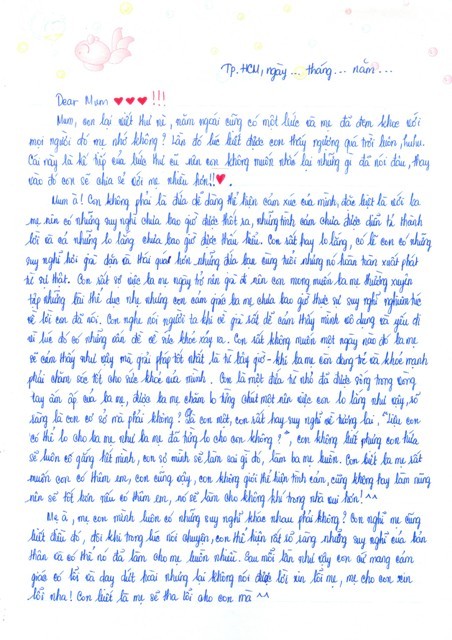 Tp.HCM, ngày ... tháng ... năm ...
Dear Mum ♥♥♥!!!
Mum, con lại viết thư nè, năm ngoái cũng có một bức và mẹ đã đem khoe với
mọi người đó mẹ nhớ không? Lần đó lúc biết được con thấy ngượng quá trời luôn, huhu.
Cái này là kế tiếp của bức thư cũ nên con không muốn nhắc lại những gì đã nói đâu, thay
vào đó con sẽ chia sẻ với mẹ nhiều hơn!! ♥.
Mum à! Con không phải là đứa dễ dàng thể hiện cảm xúc của mình, đặc biệt là với ba
mẹ nên có những suy nghĩ chưa bao giờ được thốt ra, những tình cảm chưa được diễn tả thành
lời và cả những lo lắng chưa bao giờ được thấu hiểu. Con rất hay lo lắng, có lẽ con có những
suy nghĩ hơi già dặn và thái quá hơn những đứa bạn cùng tuổi nhưng nó hoàn toàn xuất phát
từ sự thật. Con rất sợ việc ba mẹ ngày trở nên già đi nên con mong muốn ba mẹ thường xuyên
tập những bài thể dục nhẹ nhưng con cảm giác ba mẹ chưa bao giờ thực sự suy nghĩ nghiêm túc
về lời con đã nói. Con nghe nói người ta khi về già rất dễ cảm thấy mình vô dụng và yếu đi
vì lúc đó có những vấn đề về sức khoẻ xảy ra. Con rất không muốn một ngày nào đó ba mẹ
sẽ cảm thấy như vậy mà giải pháp tốt nhất là từ bây giờ - khi ba mẹ còn đang trẻ và khoẻ mạnh
phải chăm sóc tốt cho sức khoẻ của mình. Con là một đứa từ nhỏ đã được sống trong vòng
tay ấm áp của ba mẹ, được ba mẹ chăm bo từng chút một nên việc con lo lắng như vậy, rõ
ràng là con có cơ sở mà phải không? Là con một, con rất hay suy nghĩ về tương lai, "Liệu con
có thể lo cho ba mẹ như ba mẹ đã từng lo cho con không?", con không biết nhưng con hứa
sẽ luôn cố gắng hết mình, con sợ mình sẽ làm sai gì đó, làm ba mẹ buồn. Con biết ba mẹ rất
muốn con có thêm em, con cũng vậy, con không giỏi thể hiện tình cảm, cũng không hay làm nũng
nên sẽ tốt hơn nếu có thêm em, nó sẽ làm cho không khí trong nhà vui hơn! ^^
Mẹ à, mẹ con mình luôn có những suy nghĩ khác nhau phải không? Con nghĩ mẹ cũng
biết điều đó, đôi khi trong lúc nói chuyện, con thể hiện rất rõ ràng những suy nghĩ của bản
thân và có thể nó đã làm cho mẹ buồn nhiều. Sau mỗi lần như vậy con cứ mang cảm
giác có lỗi và day dứt hoài nhưng lại không nói được lời xin lỗi mẹ, mẹ cho con xin
lỗi nha! Con biết là mẹ sẽ tha lỗi cho con mà ^^